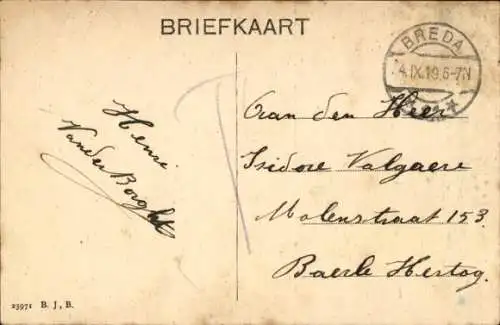 BRIEFKAART
BREDA
4.IX.19.6-7N
Henri
Van der Borght
Aan den Heer
Isidore Valgaere
Molenstraat 153.
Baerle Hertog.
23971 B. J, B.